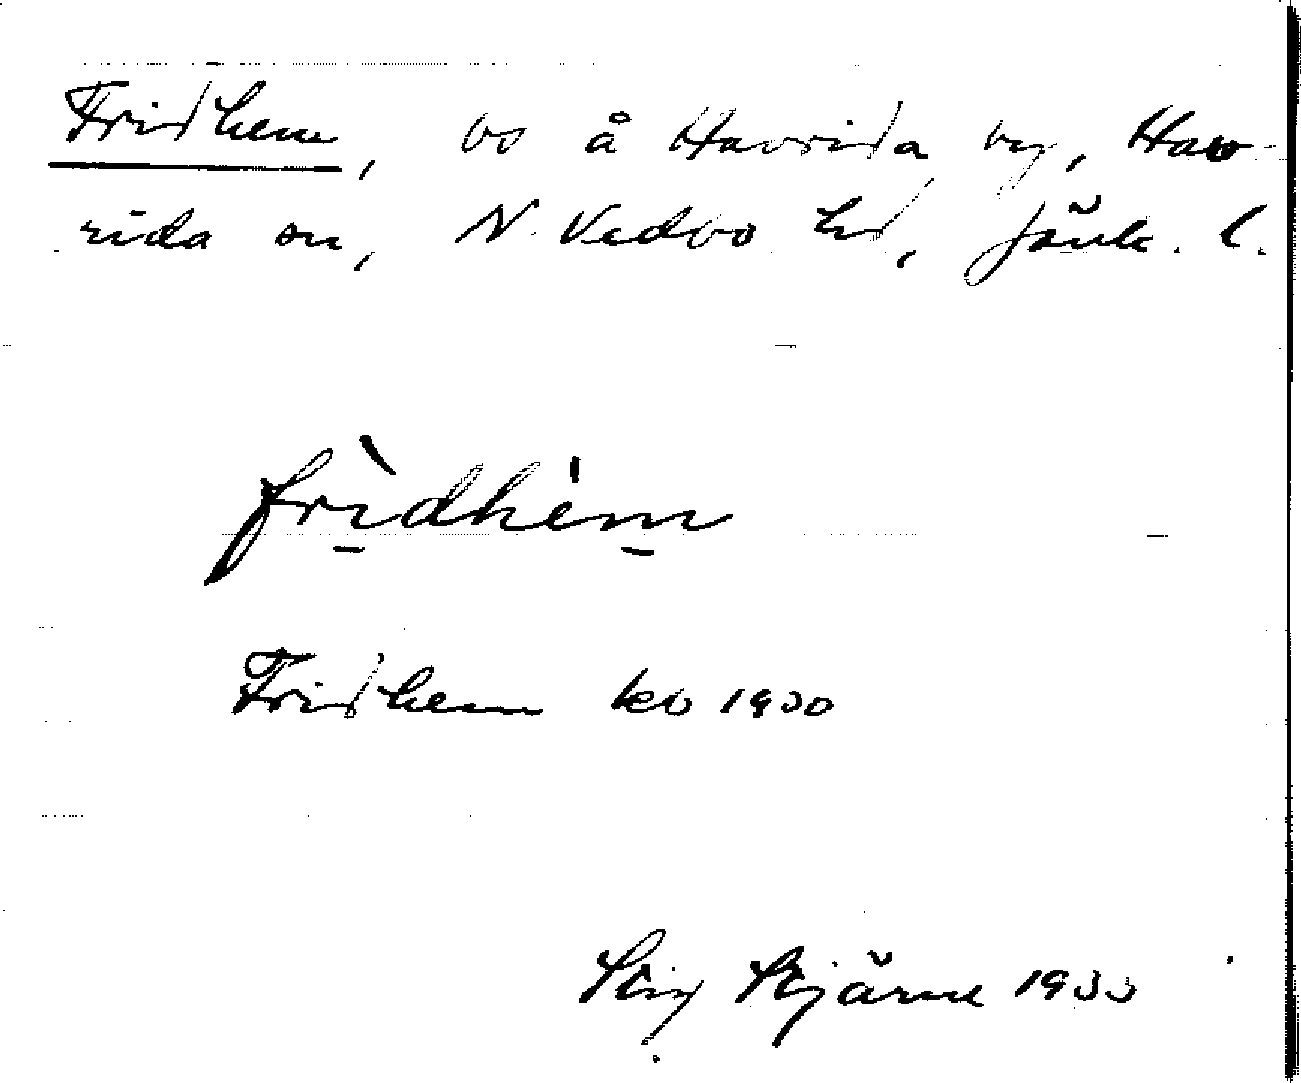 Fridhem, bo å Haurida by, Hau-
rida sn, N. Vedbo hd, Jönk. l.
fridhem
Fridhem kb 1930
Stig Stjärne 1933